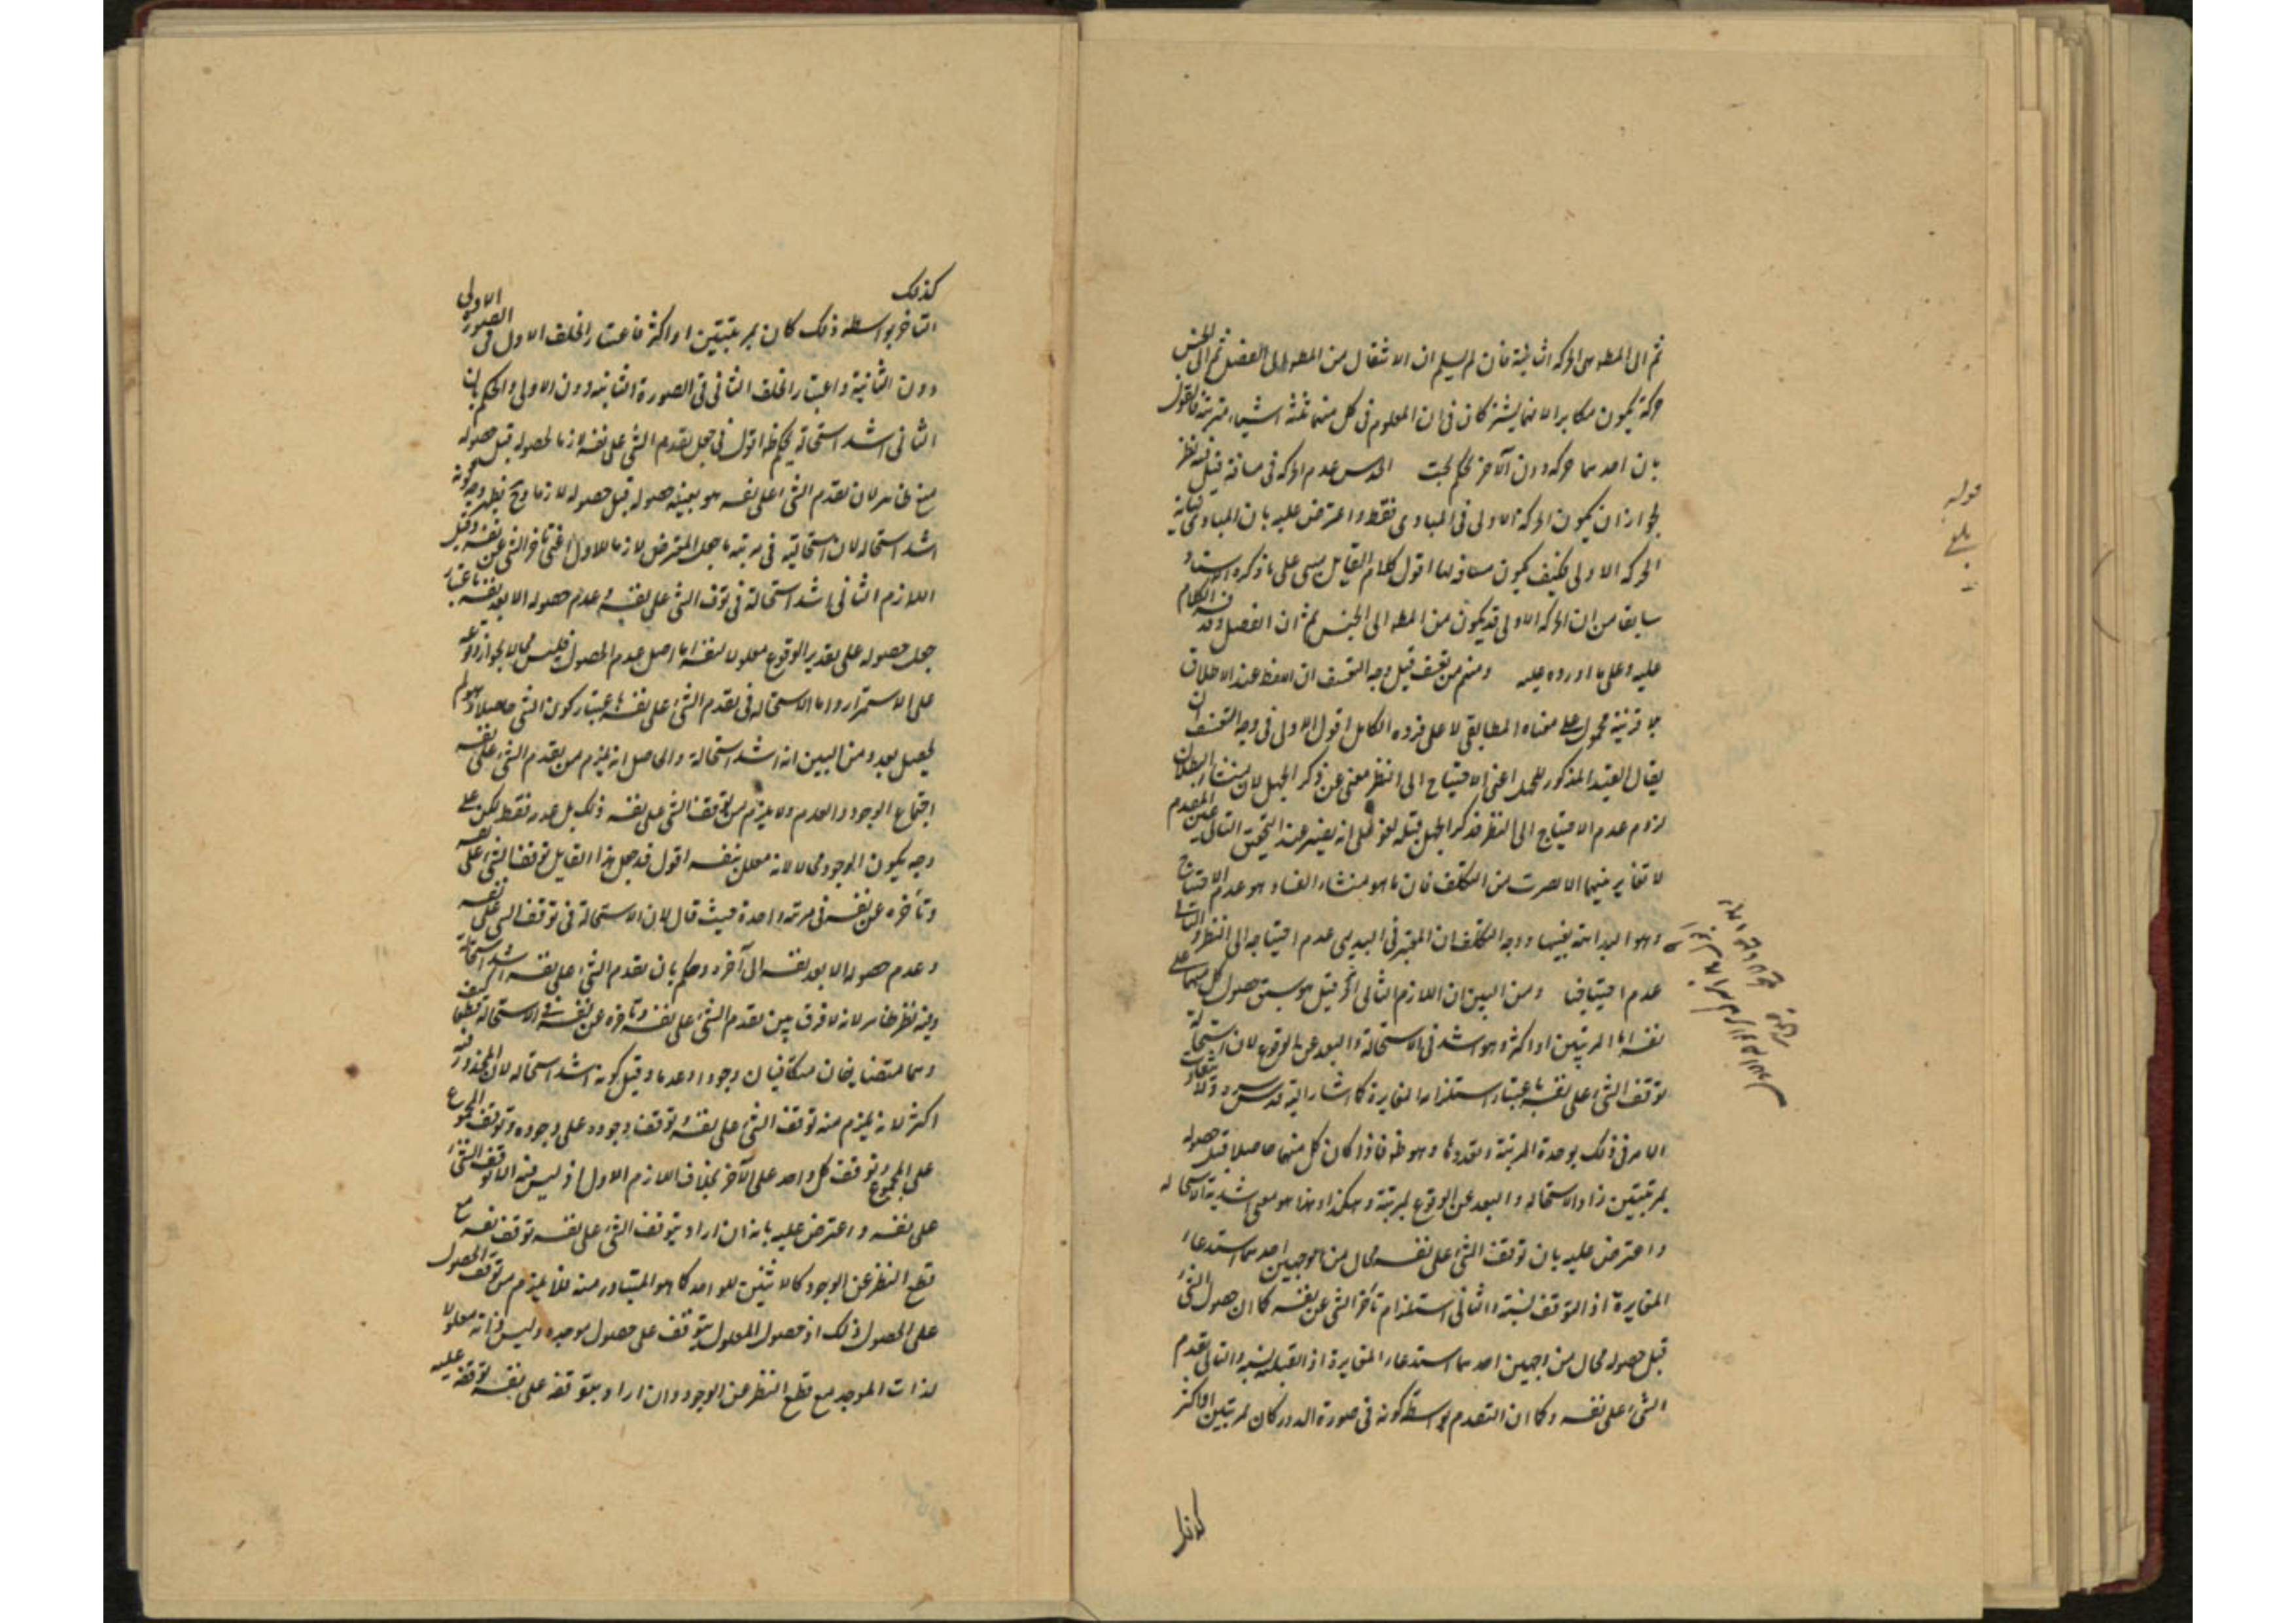 ثم الى المط هى الحركة الثانية فان لم يسلم ان الانتقال من المط الى الفصل ثم الى الجنس
حركة يكون مكابرا لانهما يشتركان فى ان المعلوم فى كل منهما ثلثة اشياء مترتبة فالقول
بان احدهما حركة دون الآخر تحكم بحت الحدس عدم الحركة فى مسافة قيل فيه نظر
لجواز ان يكون الحركة الاولى فى المبادى فقط واعترض عليه بان المبادى نهاية
الحركة الاولى فكيف يكون مسافة لها اقول كلام القايل مبنى على ما ذكره
سابقا من ان الحركة الاولى قد يكون من المط الى الجنس ثم ان الفصل وقد الكلام
عليه وعلى ما اورده عليه ومنهم من تعسف قيل وجه التعسف ان اللفظ عند الاطلاق
بلا قرينة محمول على معناه المطابقى لا على فرده الكامل اقول الاولى فى وجه التعسف ان
يقال القيد المذكور للجهل اعنى الاحتياج الى النظر مغنى عن ذكر الجهل لان منشأ البطلان
لزوم عدم الاحتياج الى النظر فذكر الجهل قبله لغو على انه يصير عند التحقيق التالى عين المقدم
لا تغاير بينهما الا بضرب من التكلف فان ما هو منشاء الفساد هو عدم الاحتياج
وهو البداهة بعينها ووجه التكلف ان المعتبر فى البديهى عدم احتياجه الى النظر
عدم احتياجنا ومن البين ان اللازم الثانى الخ قيل هو سبق حصول كل منهما على
نفسه اما بمرتبتين او اكثر وهو اشد فى الاستحالة والبعد عن الوقوع لان استحالة
توقف الشئ على نفسه باعتبار استلزام المغايرة كما اشار اليه قدس سره
الامر فى ذلك بوحدة المرتبة وتعددها وهو ظ فاذا كان كل منهما حاصلا قبل حصوله
بمرتبتين زاد الاستحالة والبعد عن الوقوع بمرتبة وهكذا وهذا هو معنى اشدية الاستحالة
واعترض عليه بان توقف الشئ على نفسه محال من وجهين احدهما استدعاء
المغايرة اذ التوقف نسبة والثانى استلزام تأخر الشئ عن نفسه كما ان حصول الشئ
قبل حصوله محال من وجهين احدهما استدعاء المغايرة اذ القبلية نسبة والثانى تقدم
الشئ على نفسه وكما ان التقدم بواسطة كونه فى صورة الدور كان بمرتبتين او اكثر
كذلك
قوله
بلغ
كذلك
التأخر بواسطة ذلك كان بمرتبتين او اكثر فاعتبار الخلف الاول فى الصورة الاولى
دون الثانية واعتبار الخلف الثانى فى الصورة الثانية دون الاولى والحكم بان
الثانى اشد استحالة تحكم ظ اقول فى جعل تقدم الشئ على نفسه لازما لحصوله قبل حصوله
منع ظاهر لان تقدم الشئ على نفسه هو بعينه حصوله قبل حصوله لا لازما وح يظهر وجه كونه
اشد استحالة لان استحالته فى مرتبة ما جعله المعترض لازما للاول اعنى تأخر الشئ عن نفسه وقيل
اللازم الثانى اشد استحالة فى توقف الشئ على نفسه وعدم حصوله الا بعد نفسه باعتبار
جعل حصوله على تقدير الوقوع معلولا لنفسه اما اصل عدم الحصول فليس محالا لجواز وقوعه
على الاستمرار واما الاستحالة فى تقدم الشئ على نفسه باعتبار كون الشئ حاصلا وهو لم
يحصل بعد ومن البين انه اشد استحالة والحاصل انه يلزم من تقدم الشئ على نفسه
اجتماع الوجود والعدم ولا يلزم من توقف الشئ على نفسه ذلك بل عدمه فقط لكن على
وجه يكون الوجود محالا لانه معلل بنفسه اقول قد جعل هذا القايل توقف الشئ على نفسه
وتأخره عن نفسه فى مرتبة واحدة حيث قال لان الاستحالة فى توقف الشئ على نفسه
وعدم حصوله الا بعد نفسه الى آخره وحكم بان تقدم الشئ على نفسه اشد استحالة
وفيه نظر ظاهر لانه لا فرق بين تقدم الشئ على نفسه وتأخره عن نفسه فى الاستحالة قطعا كيف
وهما متضايفان متكافيان وجودا وعدما وقيل كونه اشد استحالة لان المحذور فيه
اكثر لانه يلزم منه توقف الشئ على نفسه وتوقف وجوده على وجوده وتوقف المجموع
على المجموع وتوقف كل واحد على الآخر بخلاف اللازم الاول اذ ليس فيه الا توقف الشئ
على نفسه واعترض عليه بانه ان اراد بتوقف الشئ على نفسه توقف نفسه مع
قطع النظر عن الوجود كالاثنين للواحد كما هو المتبادر منه فلا يلزم من توقف الحصول
على الحصول ذلك اذ حصول المعلول يتوقف على حصول موجده وليس ذاته معلولا
لذات الموجد مع قطع النظر عن الوجود وان اراد بتوقفه على نفسه توقفه عليه